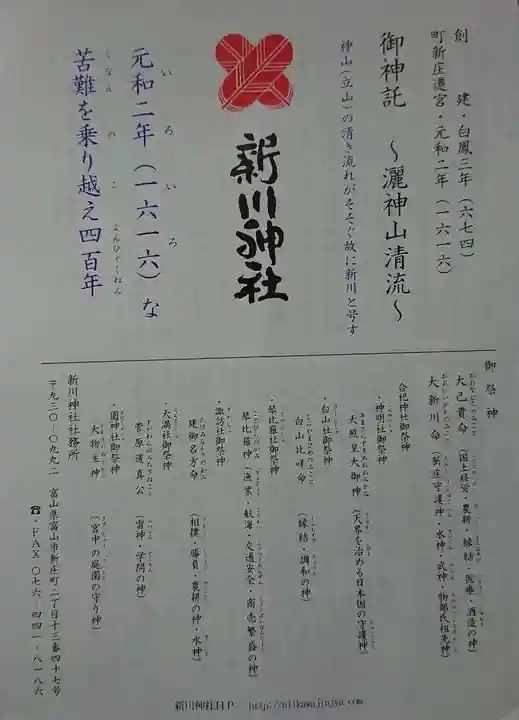 創　　建・白鳳三年（六七四）
町新庄遷宮・元和二年（一六一六）
御神託　～灑神山清流～
神山（立山）の清き流れがそそぐ故に新川と号す
新川神社
元和二年（一六一六）な
いろいろ
苦難を乗り越え四百年
くなん　の　こ　よんひゃくねん
御祭神
大己貴命（国土経営・農耕・縁結・医療・酒造の神）
大新川命（新庄守護神・水神・武神・物部氏祖先神）
合祀神社御祭神
・神明社御祭神
天照皇大御神（天界を治める日本国の守護神）
・白山社御祭神
白山比咩命（縁結・調和の神）
・琴比羅社御祭神
琴比羅神（漁業・航海・交通安全・商売繁盛の神）
・諏訪社御祭神
建御名方命（相撲・勝負・農耕の神・水神）
・天満社御祭神
菅原道真公（雷神・学問の神）
・園神社御祭神
大物主神（宮中の庭園の守り神）
新川神社社務所
〒九三〇－〇九九二　富山県富山市新庄町二丁目十三番四十七号
☎・FAX〇七六－四五一－八一八六
新川神社HP　http://niikawajinjya.com